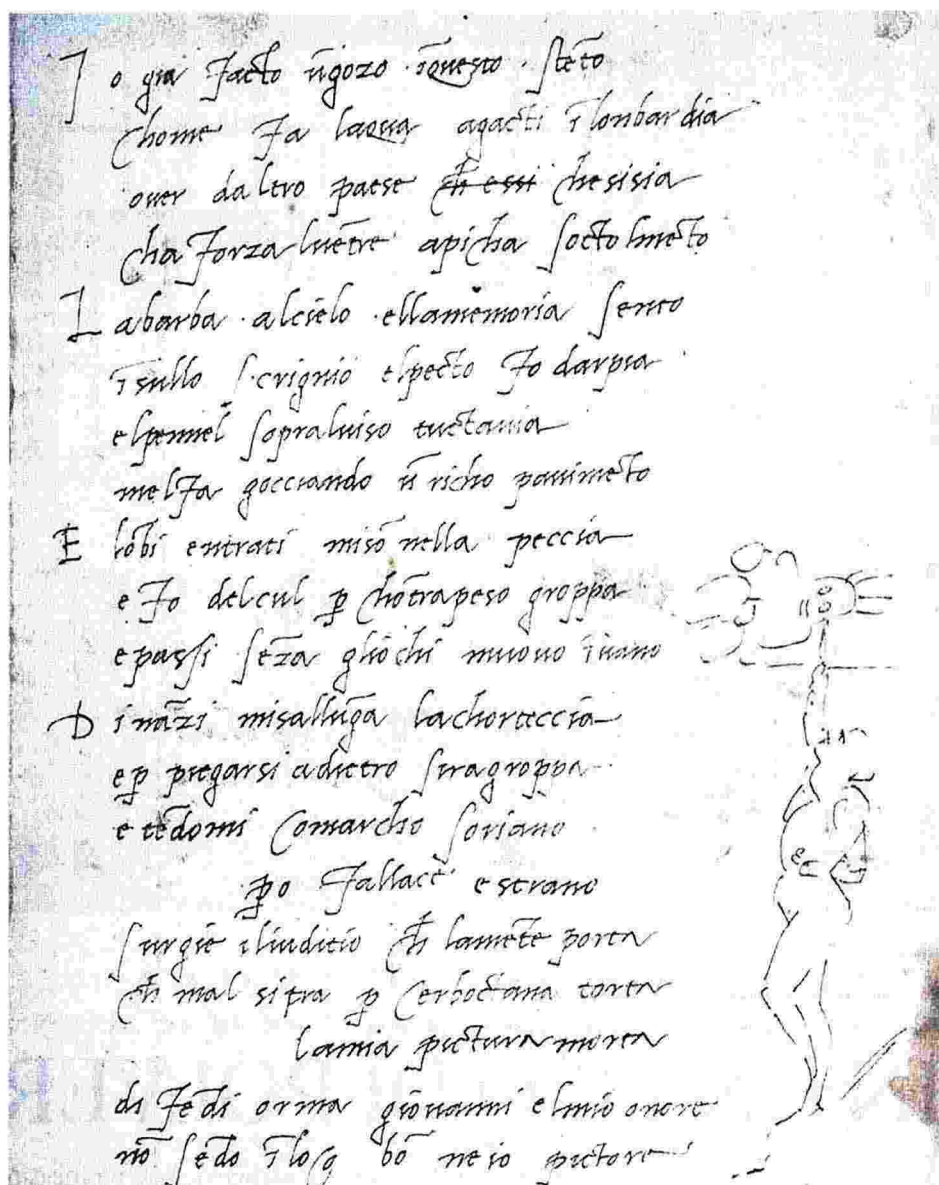 Io gia facto ūgozo īquesto stēto
chome fa laqua agacti ī lonbardia
over daltro paese ch̄ essi chesisia
cha forza luētre apicha socto lmēto
La barba alcielo ellamemoria sento
īsullo scrignio elpecto fo darpia
elpennel sopralviso tuctavia
melfa gocciando ū richo pavimēto
E lōbi entrati miso nella peccia
e fo delcul p̄ chōtrapeso groppa
e passi sēza gliochi muovo īvano
Dināzi misallūga lachorteccia
e p̄ piegarsi adietro siragroppa
e tēdomi comarcho soriano
p̄o fallace e strano
surgie iliuditio ch̄ lamēte porta
ch̄ mal sitra p̄ cerboctana torta
lamia pictura morta
di fedi orma giovanni elmio onore
nō sēdo īlog bō ne io pictore